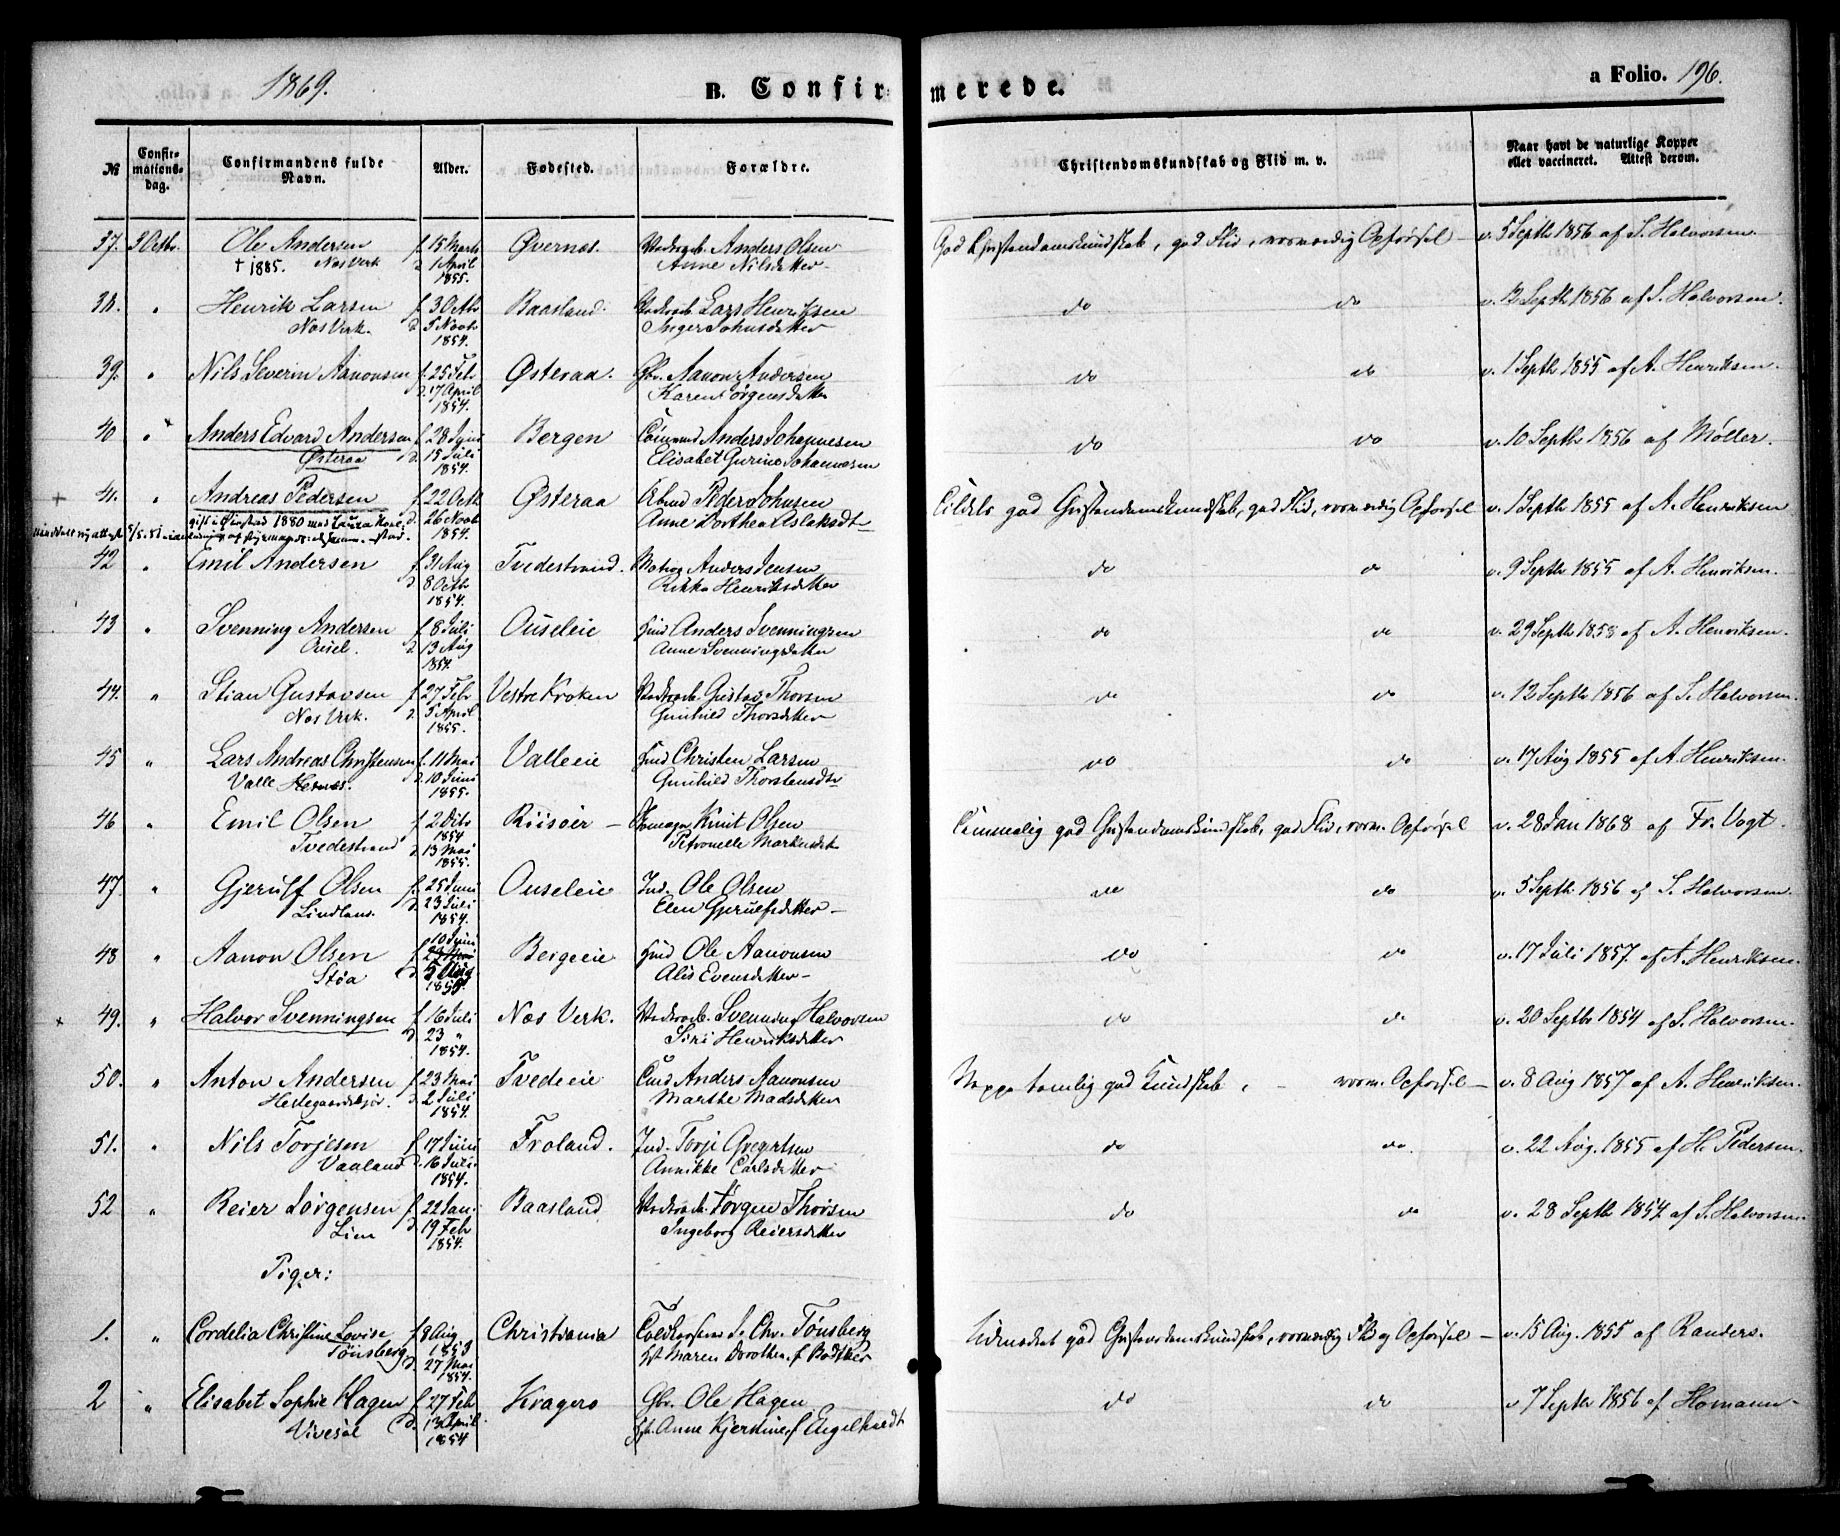 1869.
B. Confirmerede.
a Folio. 196.
№ Confirmationsdag. Confirmandens fulde Navn. Alder. Fødested. Forældre. Christendomskundskab og Flid m. v. Naar havt de naturlige Kopper eller vaccineret. Attest derom.
37. 3 Octbr. Ole Andersen f. 15 Marts Øvernæs. Anders Olsen God Christendomskundskab, god Flid, vorværdig Opførsel – v. 5 Septb 1856 af S. Halvorsen
† 1885. Næs Verk d. 1 April Anne Nilsdatter
1855.
38. " Henrik Larsen f. 30 Octb Baasland. Lars Henriksen do do v. 12 Septb 1856 af S. Halvorsen.
Næs Verk. d. 5 Novb Inger Johnsdatter
1854.
39. " Nils Severin Aanonsen f. 25 Feb Østeraa. Gbr. Aanon Andersen do do v. 1 Septb 1855 af A. Henriksen.
d. 17 April Karen Jørgensdatter
1854.
40 " Anders Edvard Andersen f. 28 Juni Bergen Anders Johannesen do do v. 10 Septb 1856 af Møller.
Østeraa d. 15 Juli Elisabet Gurine Johannesen
1854.
+ 41. " Andreas Pedersen f. 22 Octb Østeraa Peder Johnsen god Christendomskundskab, god Flid, vorværdig Opførsel v. 1 Septb 1855 af A. Henriksen
gift i 1880 med Laura d. 26 Novb Anne Dorthea Aslaksdt
1854.
42 " Emil Andersen f. 31 Aug Tvedestrand. Anders Jensen do do v. 9 Septb 1855 af A. Henriksen.
d. 8 Octb Rikka Henriksdatter
1854.
43 " Svenning Andersen f. 8 Juli Ouseleie Anders Svenningsen do do v. 29 Septb 1858 af A. Henriksen.
Ousel. d. 13 Aug Anne Svenningsdatter
1854.
44. " Stian Gustavsen f. 27 Feb Vestre Kroken Gustav Thorsen do do v. 12 Septb 1856 af S. Halvorsen.
Næs Verk. d. 5 April Gunhild Thorsdatter
1855.
45 " Lars Andreas Christensen f. 11 Mai Valleeie Christen Larsen do do v. 17 Aug 1855 af A. Henriksen.
Valle d. 10 Juni Gunhild Thorstensdtr
1855.
46 " Emil Olsen f. 2 Octb Riisøer – Knut Olsen god Christendomskundskab, god Flid, vorv. Opførsel v. 28 Jan 1868 af Fr. Vogt.
1854
Tvedestrand d. 13 Mai Petronelle Markusdtr
1855.
47 " Gjerulf Olsen f. 25 Juni Ouseleie Ind. Ole Olsen do do v. 5 Septb. 1856 af S. Halvorsen.
Lindland. d. 23 Juli Elen Gjerulfsdatter –
1854.
10 Juni
48 " Aanon Olsen f. Bergeeie Ole Aanonsen do do v. 17 Juli 1857. af A. Henriksen.
Støa d. 5 Aug Alis Evensdatter –
49. " Halvor Svenningsen f. 16 Juli Næs Verk. Svenning Halvorsen do do v. 20 Septbr 1854 af S. Halvorsen.
d. 23 " Siri Henriksdatter
1854.
50. " Anton Andersen f. 23 Mai Tvedeeie Anders Aanonsen Neppe temlig god Kundskab, – vorv. Opførsel – v. 8 Aug 1857 af A. Henriksen.
d. 2 Juli Marthe Madsdatter
1854.
51. " Nils Torjesen f. 17 Juni Froland. Ind. Torje Gregertsen do do v. 22 Aug. 1855 af H. Pedersen.
Vaaland d. 16 Juli Annikke Carlsdatter
1854.
52 " Reier Jørgensen f. 22 Jan. Baasland Jørgen Thorsen do do v. 28 Septb 1854 af S. Halvorsen.
Lien d. 19 Feb Ingeborg Reiersdatter
1854.
Piger:
1. " Cordelia Christine Lovise f. 8 Aug Christiania Toldkasserer J. Chr. Tønsberg Udmærket god Christendomskundskab, vorværdig Flid og Opførsel – v. 15 Aug. 1855 af Randers.
Tønsberg 1853
d. 27 Mai Maren Dorothea f. Bødtker
1854.
2 " Elisabet Sophie Hagen f. 27 Feb Kragerø Gbr. Ole Hagen do do v 7 Septb 1856 af Homann
d. 13 April Anne Kjerstine f Engelhardt
1854